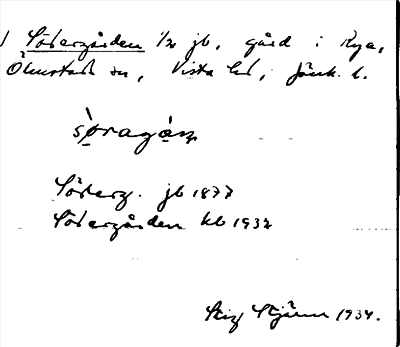 1 Södergården 1/2 jb, gård i Rya,
Ölmstads sn, Vista hd, Jönk. l.
sø̀ragá̱ṇ
Söderg. jb 1877
Södergården kb 1932
Stig 1934.